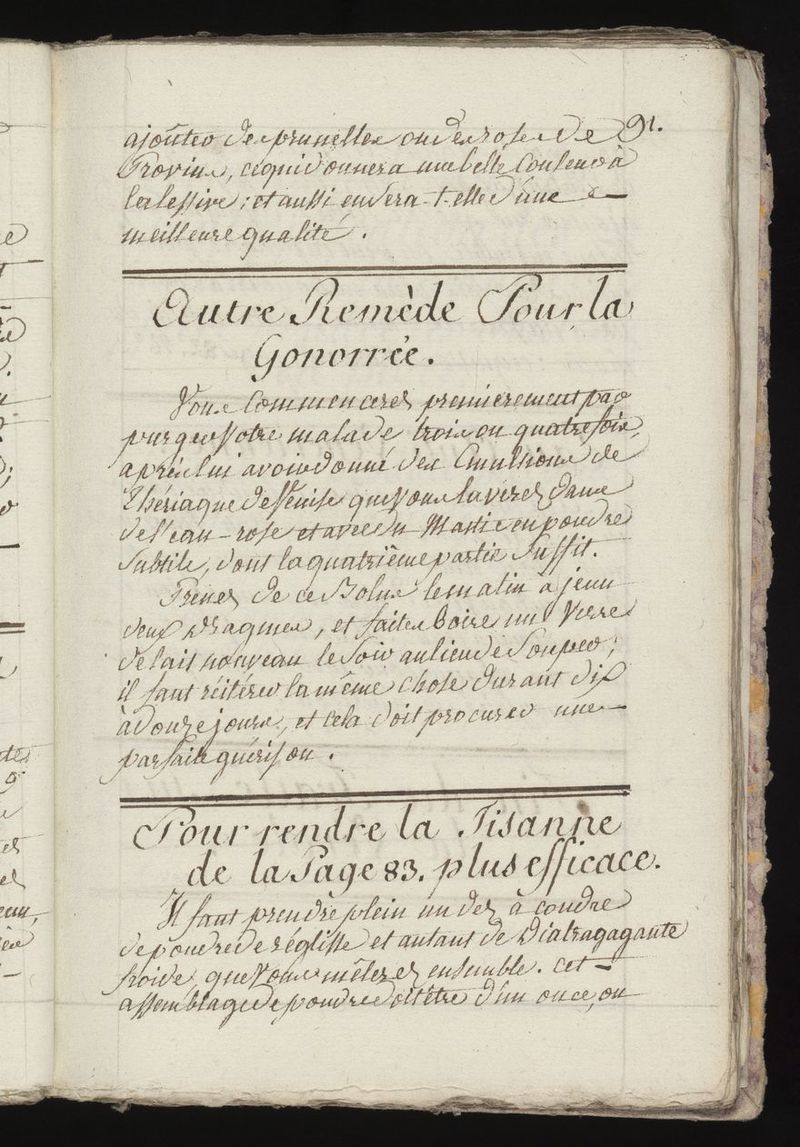 91.
ajoûter des prunelles ou des roses de
Provins, ce qui donnera une belle Couleur à
la lessive ; et aussi en sera-t-elle d'une
meilleure qualité.
Autre Remède Pour la
Gonorrée.
Vous Commencerez premierement par
purger Votre malade trois ou quatre fois,
après lui avoir donné des Emulsions de
Thériaque de Venise que Vous laverez dans
de l'eau-rose et avec du Mastic en poudre
Subtile, dont la quatrième partie Suffit.
Prenez de ce Bolus le matin à jeun
deux dragmes, et faites Boire un Verre
de lait nouveau le Soir au lieu de Souper ;
il faut réitérer la même Chose durant dix
à douze jours, et cela doit procurer une
parfaite guérison.
Pour rendre la Tisanne
de la Page 83. plus efficace.
Il faut prendre plein un dez à coudre
de poudre de réglisse et autant de Diatragagante
froide que Vous mêlerez ensemble. cet
assemblage de poudre doit être d'un once, ou